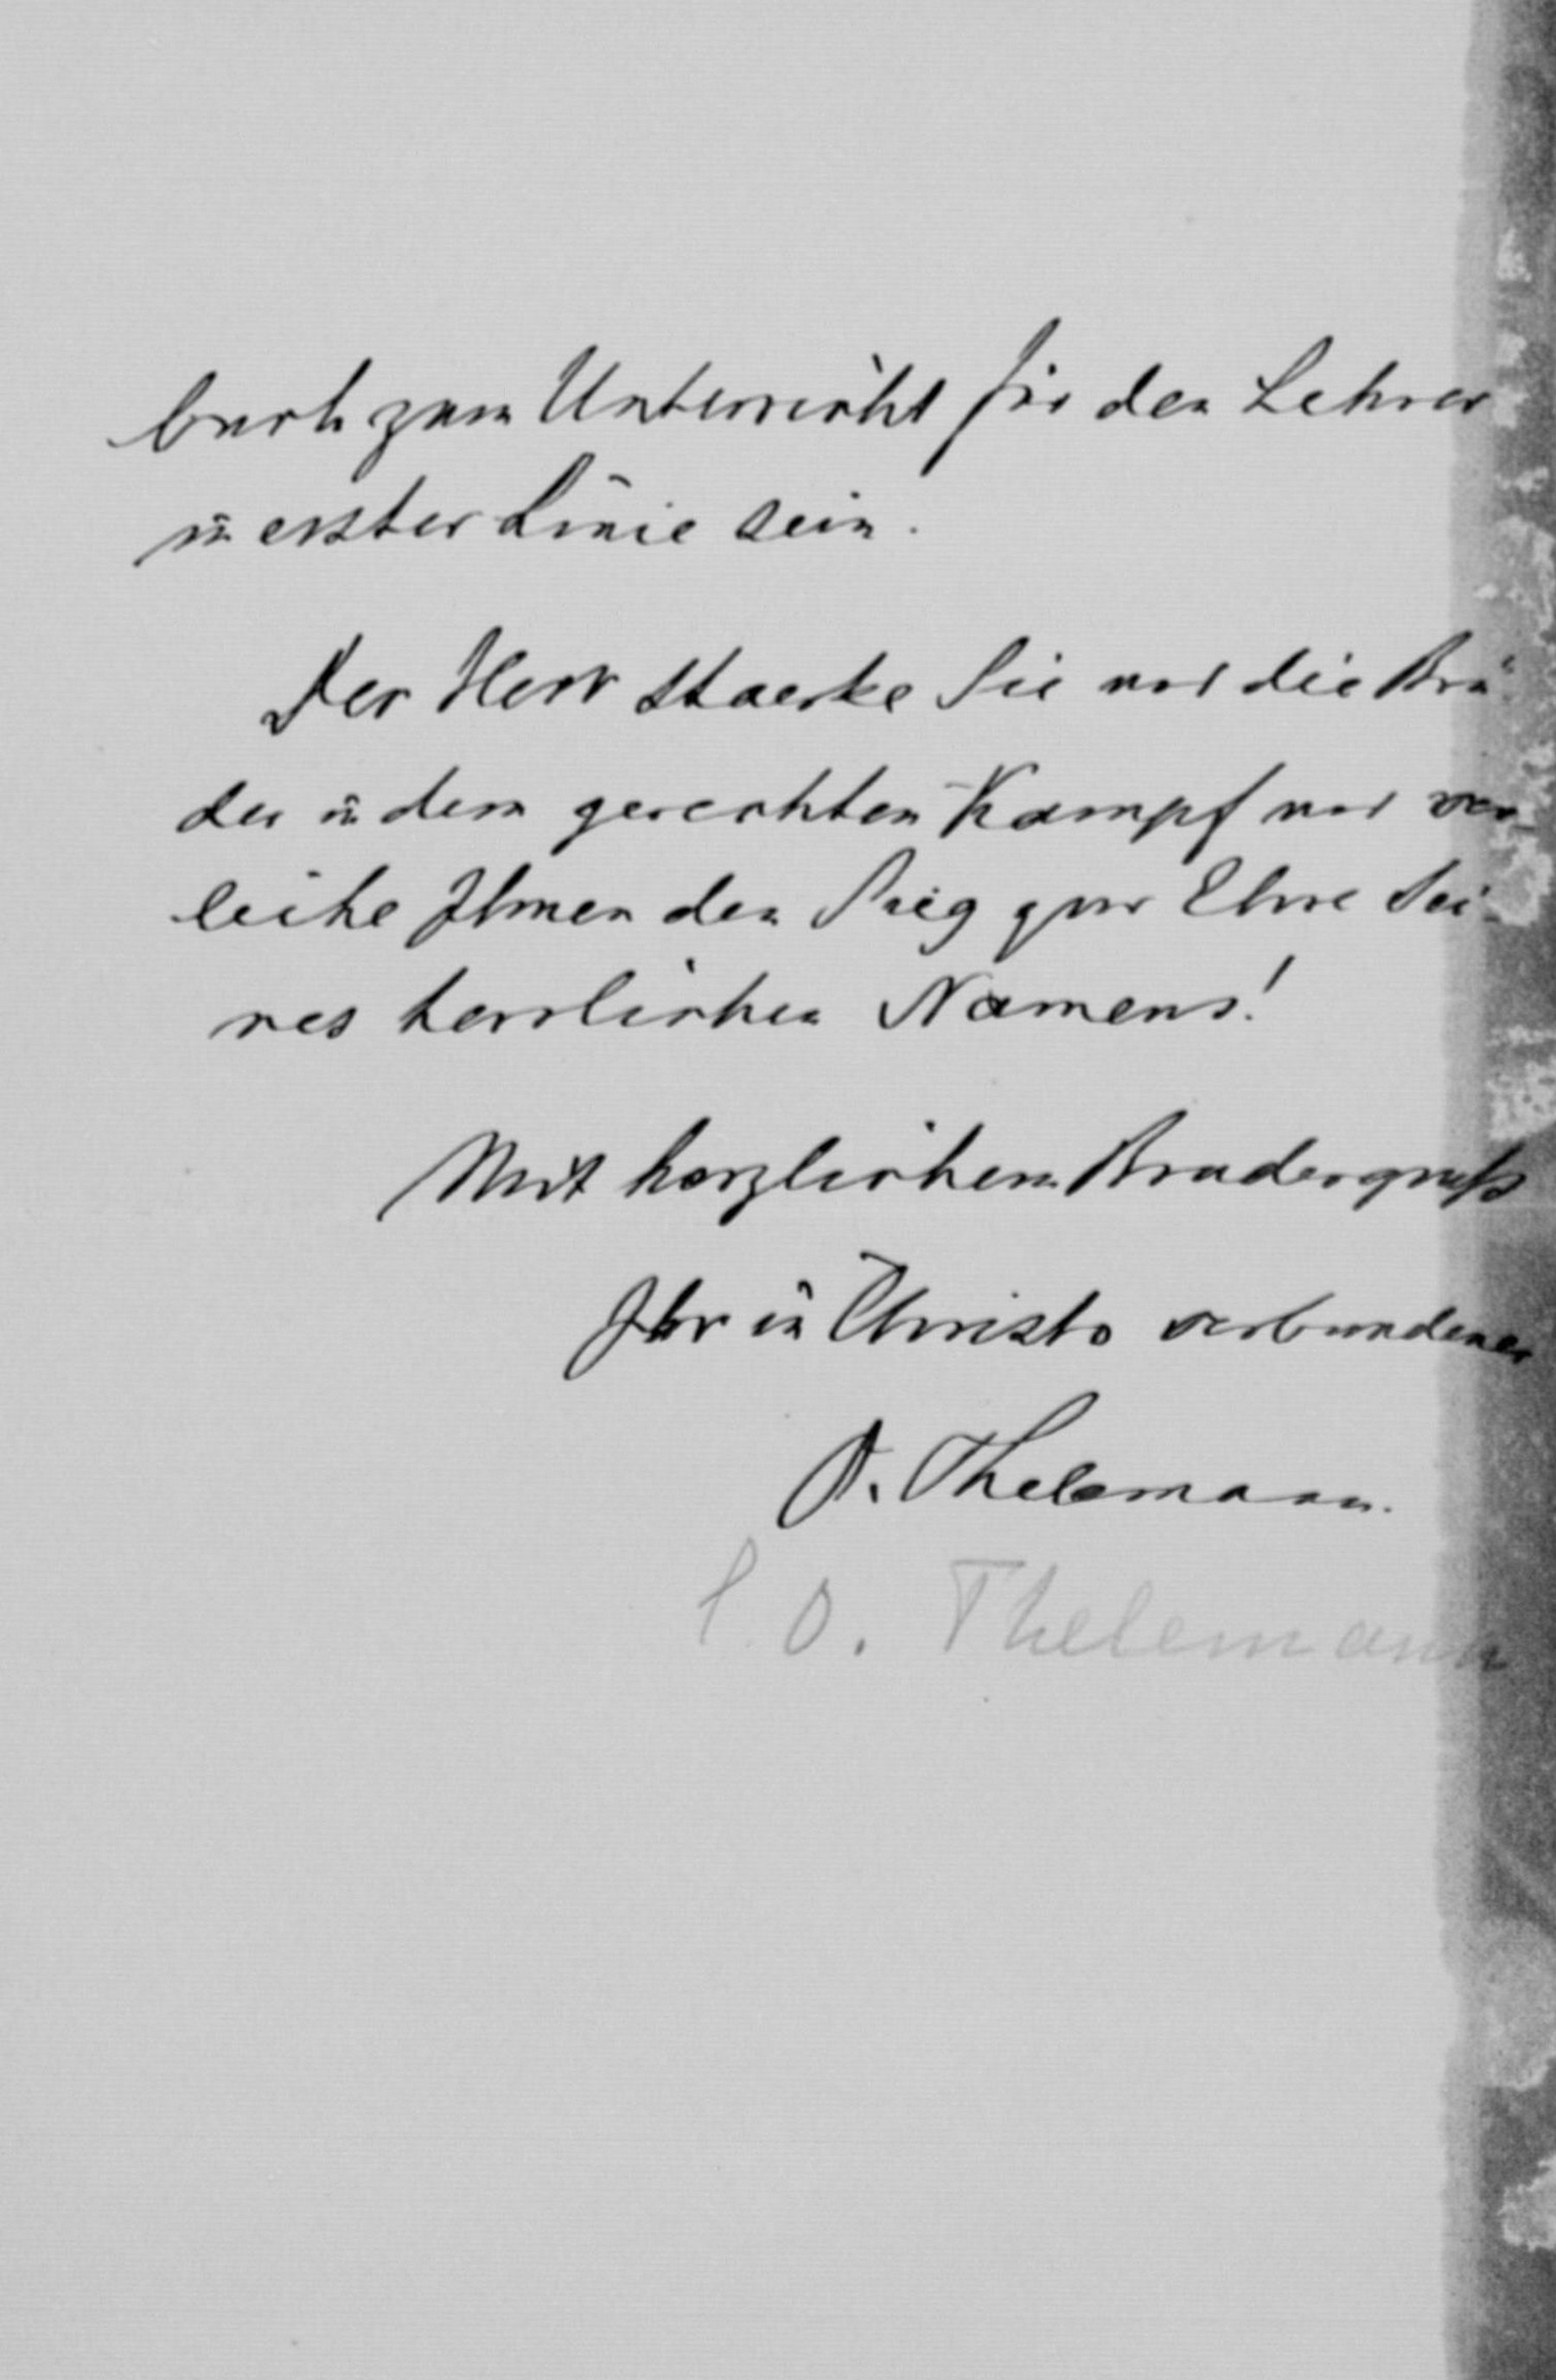 buch zum Unterricht für den Lehrer
in erster Linie sein.
Der Herr staerke Sie und die Brü-
der in dem gerechten Kampf und ver-
leihe Ihnen den Sieg zur Ehre Sei-
nes herrlichen Namens!
Mit herzlichem Brudergruß
Ihr in Christo verbundener
O. Thelemann.
O. Thelemann